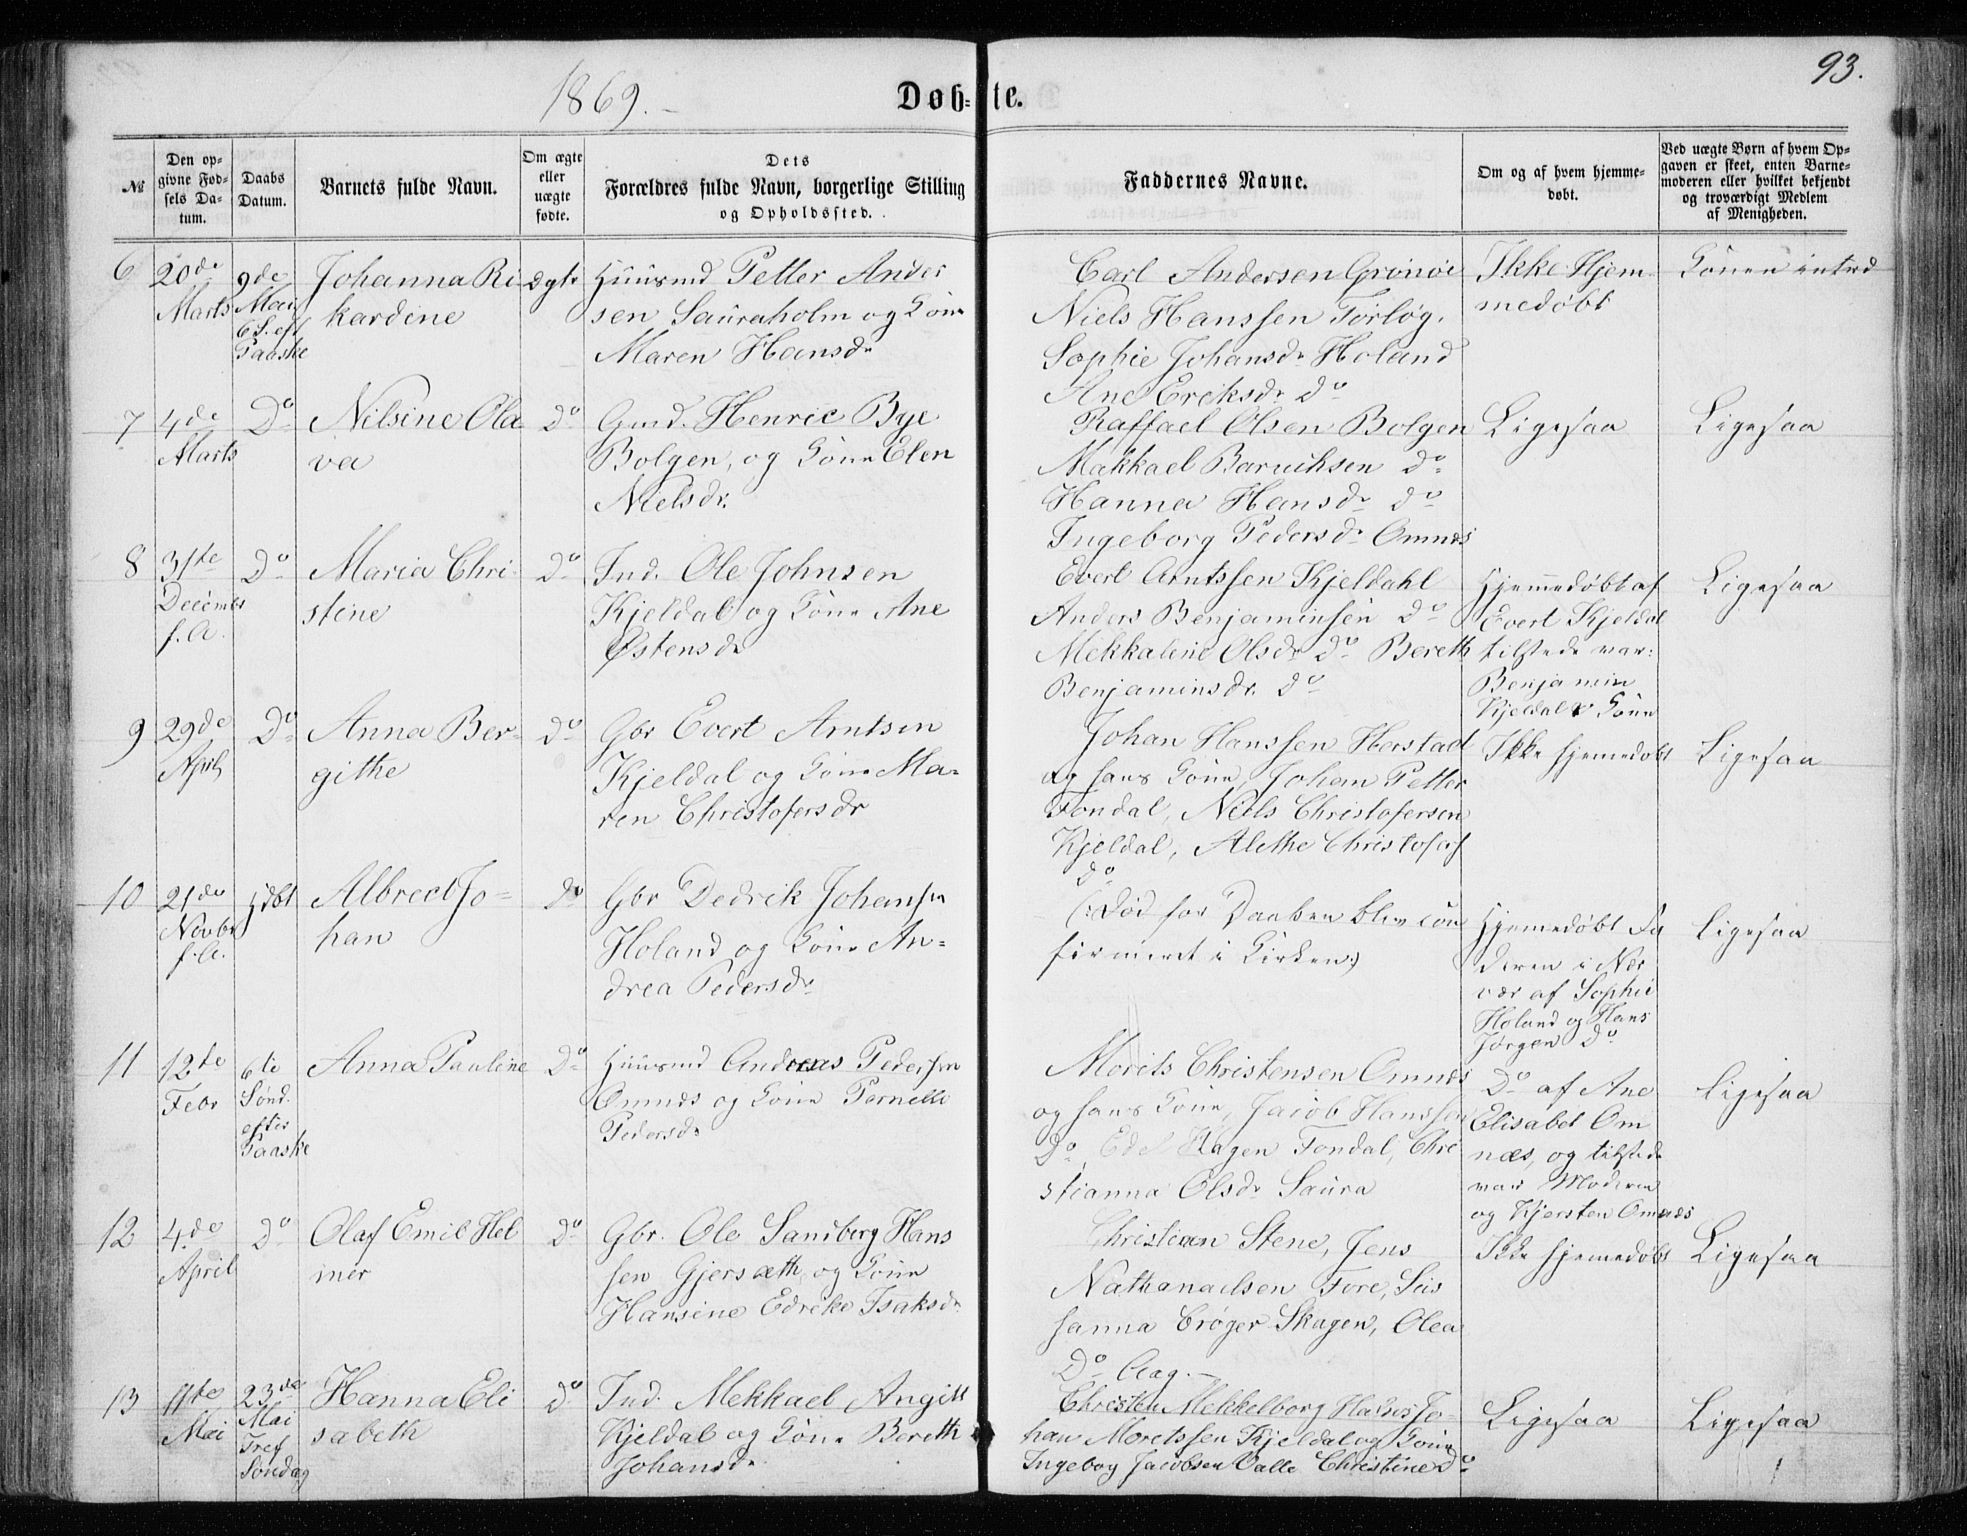 1869.
Døb=te.
93.
№
Den op-
givne Fød-
sels Da-
tum.
Daabs
Datum.
Barnets fulde Navn.
Om ægte
eller
uægte
fødte.
Dets
Forældres fulde Navn, borgerlige Stilling
og Opholdssted.
Faddernes Navne.
Om og af hvem hjemme-
døbt.
Ved uægte Børn af hvem Op-
gaven er skeet, enten Barne-
moderen eller hvilket bekjendt
og troværdigt Medlem
af Menigheden.
6
20de
Marts
9de
Mai
6 S. eft
Paaske
Johanna Ri
kardine
ægte
Huusmd Petter Ander
sen Sauraholm og Kone
Maren Hansdr
Carl Andersen Grønøe
Niels Hanssen Forløg.
Sophie Johansdr Holand
Ane Eriksdr Do
Ikke Hjem
medøbt
7
4de
Marts
Do
Nilsine Ola
va
Do
Gmd. Henric Bye
Bolgen, og Kone Elen
Nielsdr.
Raffael Olsen Bolgen
Makkael Baruchsen do
Hanna Hansdr do
Ingeborg Pedersdr Omnes
Ligesaa
Ligesaa
8
31te
Decembr
f. A.
Do
Maria Chri
stine
Do
Ind. Ole Johnsen
Kjeldal og Kone Ane
Østensdr
Evert Arntssen Kjeldahl
Anders Benjaminsen do
Mekkaline Olsdr do Bereth
Benjaminsdr. do
Hjemmedøbt af
Evert Kjeldal
tilstede var:
Benjamin
Kjeldal & Kone
Ligesaa
9
29de
April
Do
Anna Ber-
githe
Do
Gbr Evert Arntsen
Kjeldal og Kone Ma-
ren Christofersdr
Johan Hanssen Herstad
og hans Kone, Johan Petter
Fondal, Niels Christofersen
Kjeldal, Alethe Christofers
do
Ikke hjemedøbt
Ligesaa
10
21de
Novbr
f. A.
hjdbt
Albrect Jo-
han
Do
Gbr Dedrik Johansen
Holand og Kone An-
drea Pedersdr
(: Død for Daaben blev con
firmeret i Kirken:)
Hjemedøbt Fa
deren i Nær
vær af Sophie
Holand og Hans
Jørgen Do
Ligesaa
11
12te
Febr
6te
Sønd.
efter
Paaske
Anna Pauline
Do
Huusmd Andreas Pedersen
Omnes og Kone Pernelle
Pedersdr
Morits Christensen Omnes
og hans Kone, Jacob Hanssen
Do, Edel Hagen Fondal, Chri
stianna Olsdr Saura
Do af Ane
Elisabet Om
næs, og tilstede
var Moderen
og Kjersten Omnæs
Ligesaa
12
4de
April
Do
Olaf Emil Hel
mer
Do
Gbr. Ole Sandberg Hans
sen Gjersæth og Kone
Hansine Edrike Isaksdr
Christian Stene, Jens
Nathanaelsen Fore, Sus
sanna Crøger Skagen, Olea
Do Aag.
Ikke hjemedøbt
Ligesaa
13
11te
Mai
23de
Mai
Tref
Søndag
Hanna Eli
sabeth
Do
Ind. Mekkael Angill
Kjeldal og Kone Bereth
Johansdr
Christen Mekkelborg Jo-
han Moretssen Kjeldal og Kone
Ingebog Jacobsen Valle Christine do
Ligesaa
Ligesaa